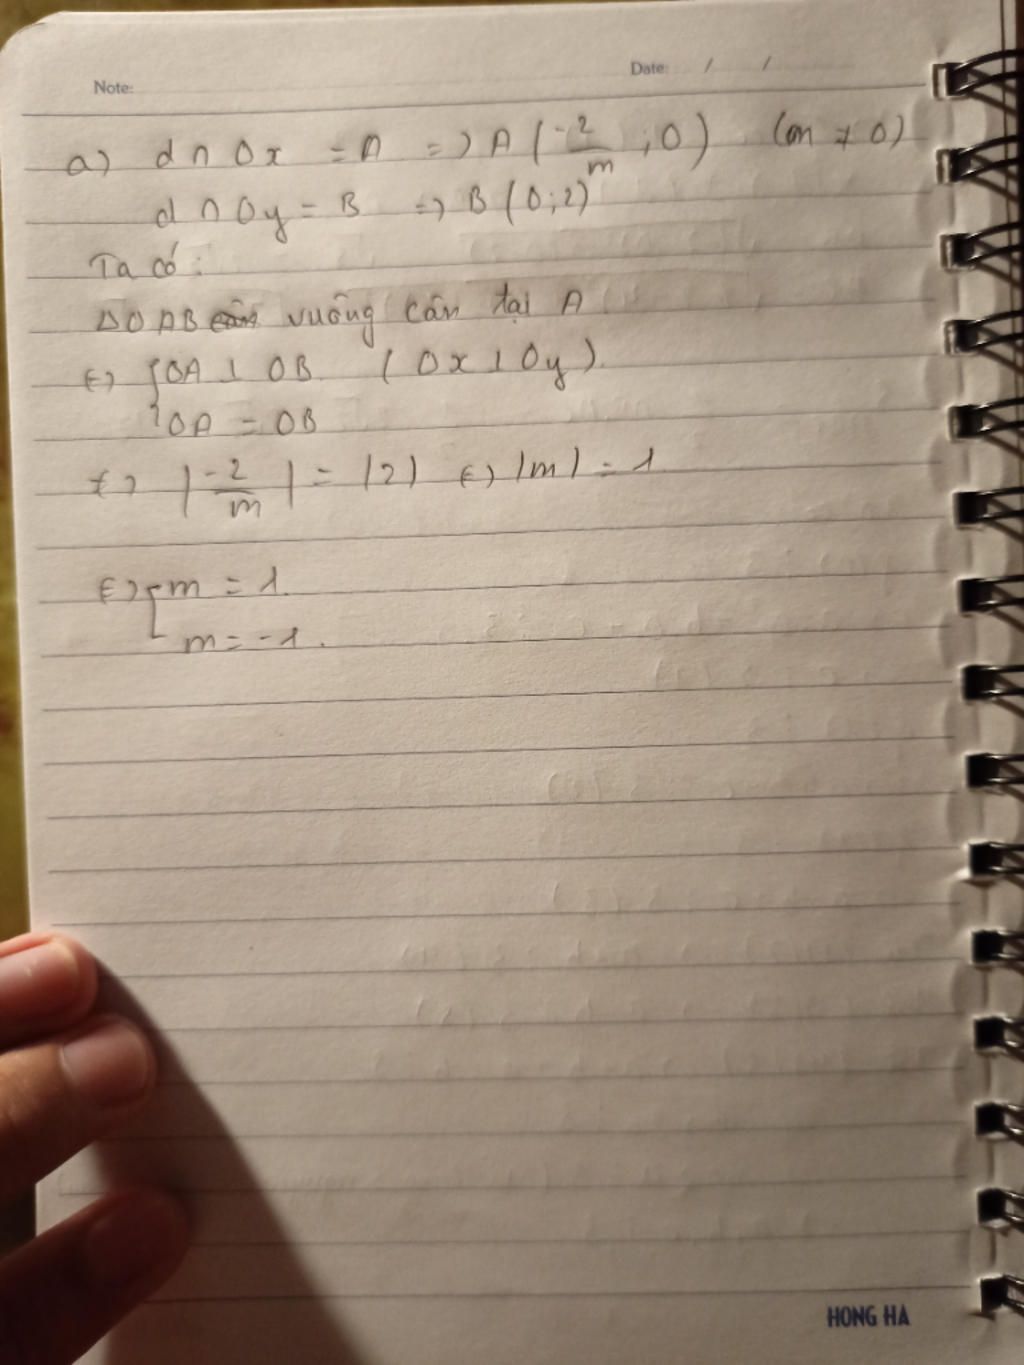 Note:
Date: / /
a) d ∩ Ox = A => A (-2/m ; 0) (m ≠ 0)
d ∩ Oy = B => B (0;2)
Ta có:
ΔOAB vuông cân tại A
<=> { OA ⊥ OB (Ox ⊥ Oy).
OA = OB
<=> |-2/m| = |2| <=> |m| = 1
<=> [ m = 1.
m = -1.
HONG HA